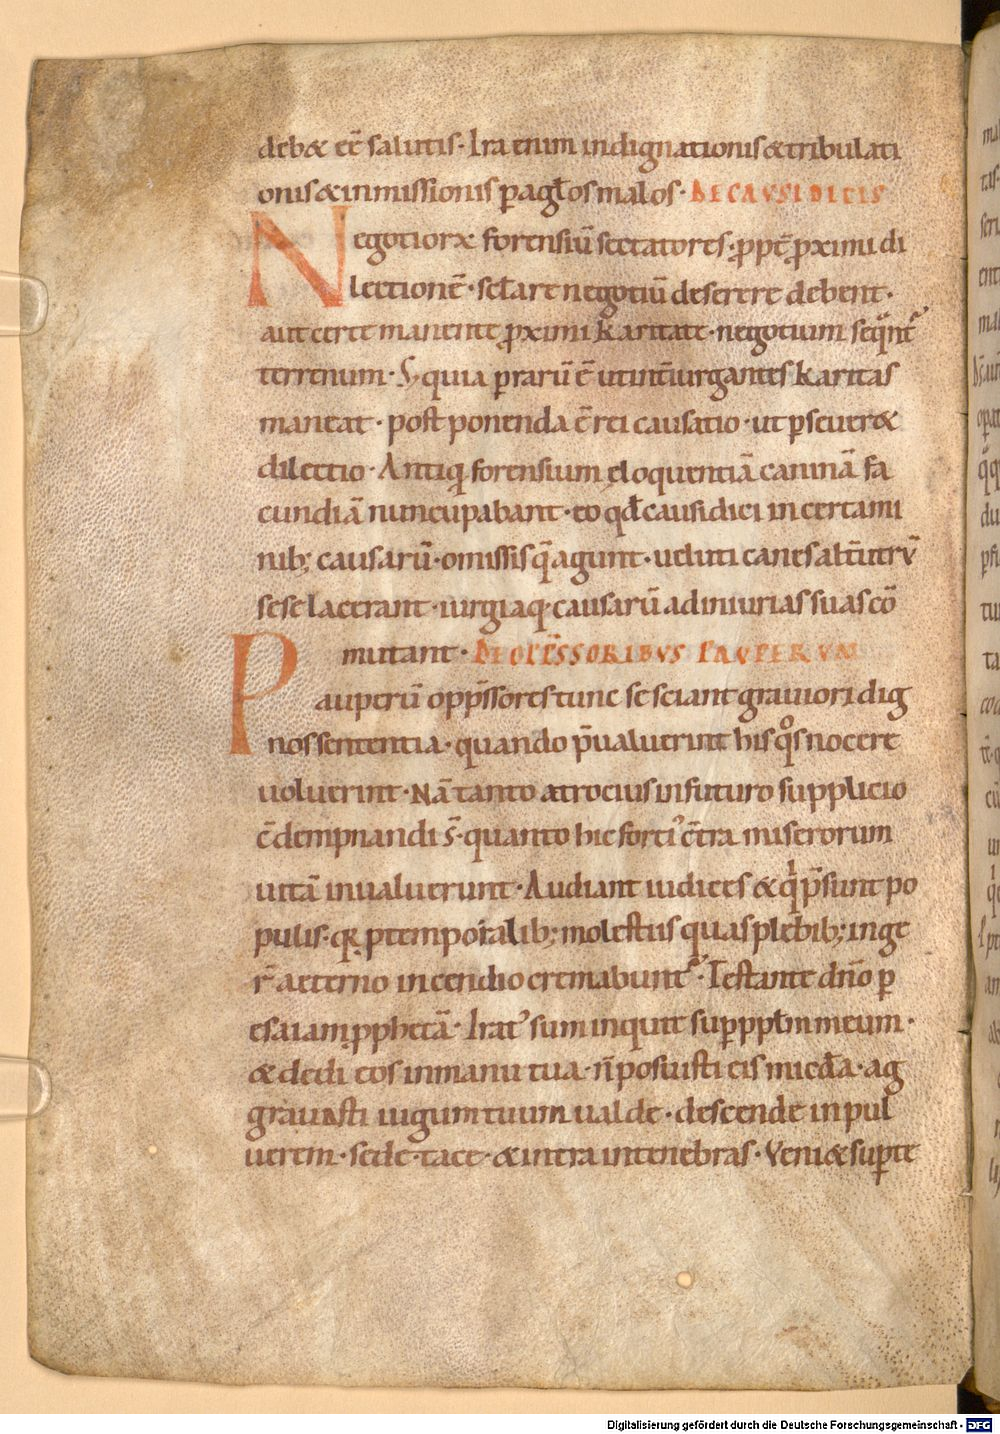 deb& eē salutis· Ira enim indignationis &tribulati
onis &inmissionis p agłos malos· DE CAVSIDICIS
Negotiorꝝ forensiū sectatores· ꝓpt̄ ꝓximi di
lectionē· sc̄lare negotiū deserere debent·
aut certe manente ꝓximi karitate· negotium seqꝛ̄nt᷒
terrenum· S; quia perrarū ē ut int̄ iurgantes karitas
maneat· post ponenda ē rei causatio· ut ꝑseuer&
dilectio· Antiqi forensium eloquentiā caninā fa
cundiā nuncupabant· eo qđ causidici in certami
nib; causarū· omissis q̄ agunt· ueluti canes alt̄utrū
sese lacerant· iurgiaq· causarū ad iniurias suas cō
mutant· DE OPP̄SSORIBVS PAVPERVM
Pauperū opp̄ssores tunc se sciant grauiori dig
nos sententia· quando p̄ualuerint his qͦs nocere
uoluerint· Nā tanto atrocius in futuro supplicio
c̄dempnandi s̄· quanto hic forti᷒ c̄tra miserorum
uitā inualuerunt· Audiant iudices & qͥ p̄sunt po
pulis· qꝛ ꝑ temporalib; molestiis quas plebib; inge
r̄ aeterno incendio cremabunt᷒· Testante dn̄o ꝑ
esaiam ꝓphetā· Irat᷒ sum inquit sup ppłm meum·
& dedi eos in manu tua· n̄ posuisti eis mic̄đa· ag
grauasti iugum tuum ualde· descende in pul
uerem· sede· tace· & intra in tenebras· Veni& sup te
Digitalisierung gefördert durch die Deutsche Forschungsgemeinschaft - DFG